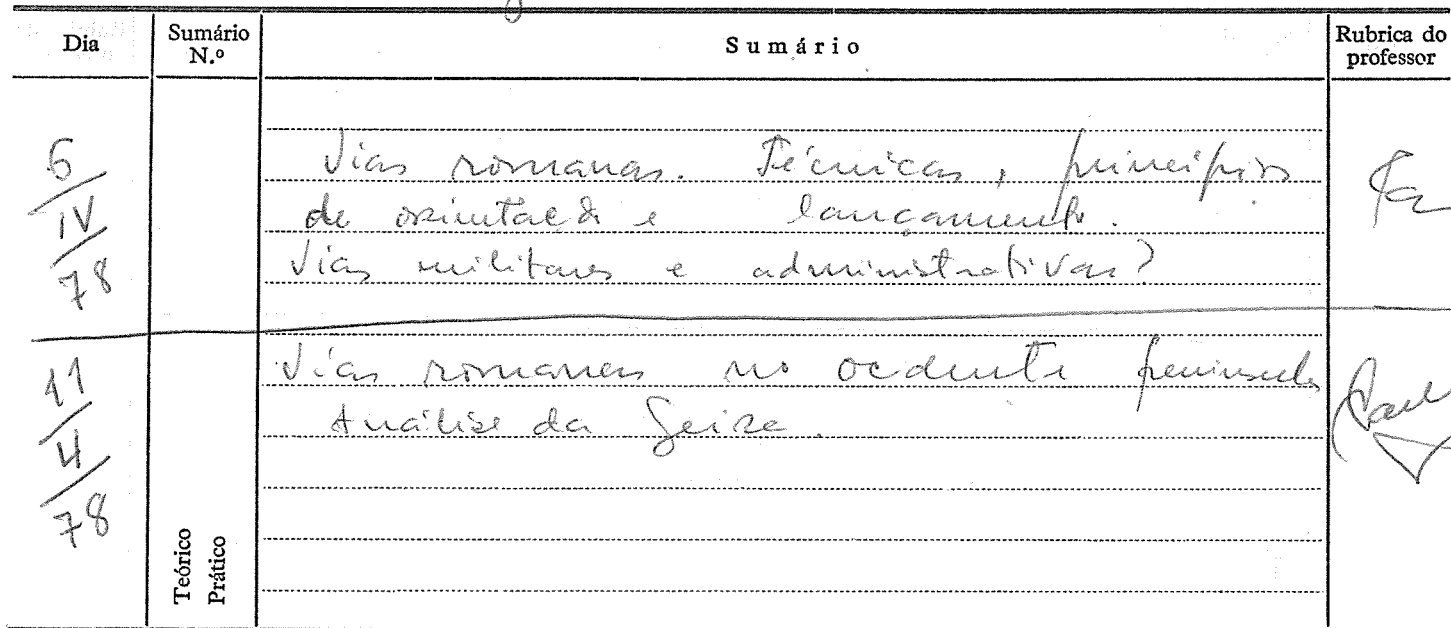 Dia
Sumário N.º
Sumário
Rubrica do professor
6/IV/78
Vias romanas. Técnicas, princípios
de orientação e lançamento.
Vias militares e administrativas?
11/4/78
Vias romanas no ocidente peninsular
Análise da Geira.
Teórico
Prático